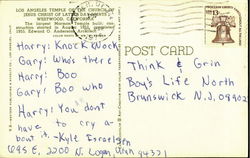 LOS ANGELES TEMPLE OF THE CHURCH OF
JESUS CHRIST OF LATTER DAY SAINTS
WESTWOOD, CALIFORNIA
POST CARD
Harry: Knock Knock
Gary: Who's there
Harry: Boo
Gary: Boo who
Harry: You don't
have to cry a-
bout it. -Kyle Israelsen
695 E. 2200 N. Logan, Utah 84321
Think & Grin
Boy's Life North
Brunswick N.J. 09902